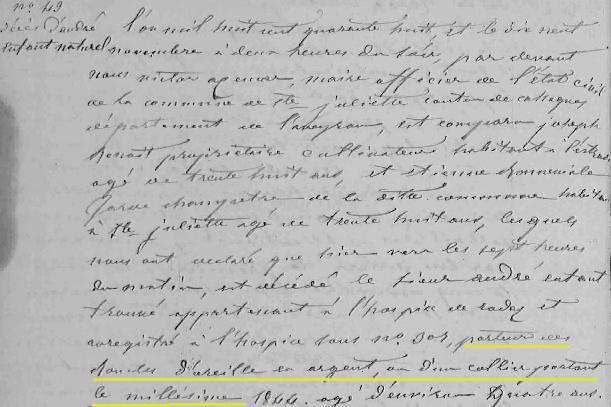 nº 49
Décès d'andré
Enfant naturel
L'an mil huit cent quarante huit, et le dix neuf
novembre à deux heures du soir, par devant
nous victor maire officier de l'état civil
de la commune de Ste juliette canton de cassagnes
département de l'aveyron, est comparu joseph
Benoit propriétaire cultivateur habitant à
agé de trente huit ans, et etienne
garde champetre de la ditte commune habitant
à Ste juliette agé de trente huit ans, lesquels
nous ont declaré que hier vers les sept heures
du matin, est décédé le sieur andré enfant
trouvé appartenant à l'hospice de rodez et
enregistré à l'hospice sous nº 307, porteur des
boucles d'oreille en argent, ou d'un collier portant
le millésime 1844. agé d'environ quatre ans.